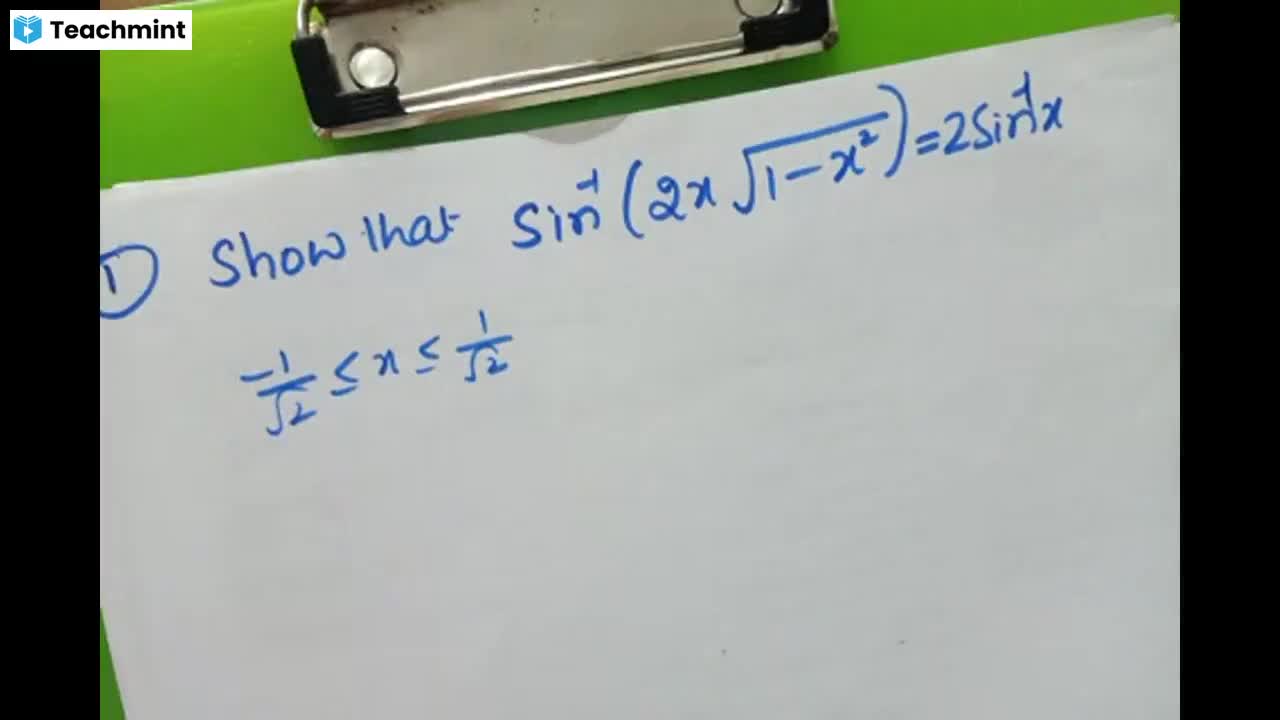 Teachmint
① Show that sin⁻¹(2x√(1-x²)) = 2sin⁻¹x
-1/√2 ≤ x ≤ 1/√2